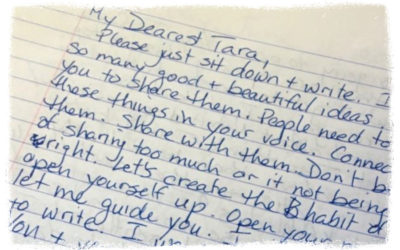 My Dearest Tara,
Please just sit down + write. I
so many good + beautiful ideas
you to share them. People need to
these things in your voice. Connec
them. Share with them. Don't b
of sharing too much or it not being
right. Let's create the habit of
open yourself up. Open you
let me guide you. I
to write. I